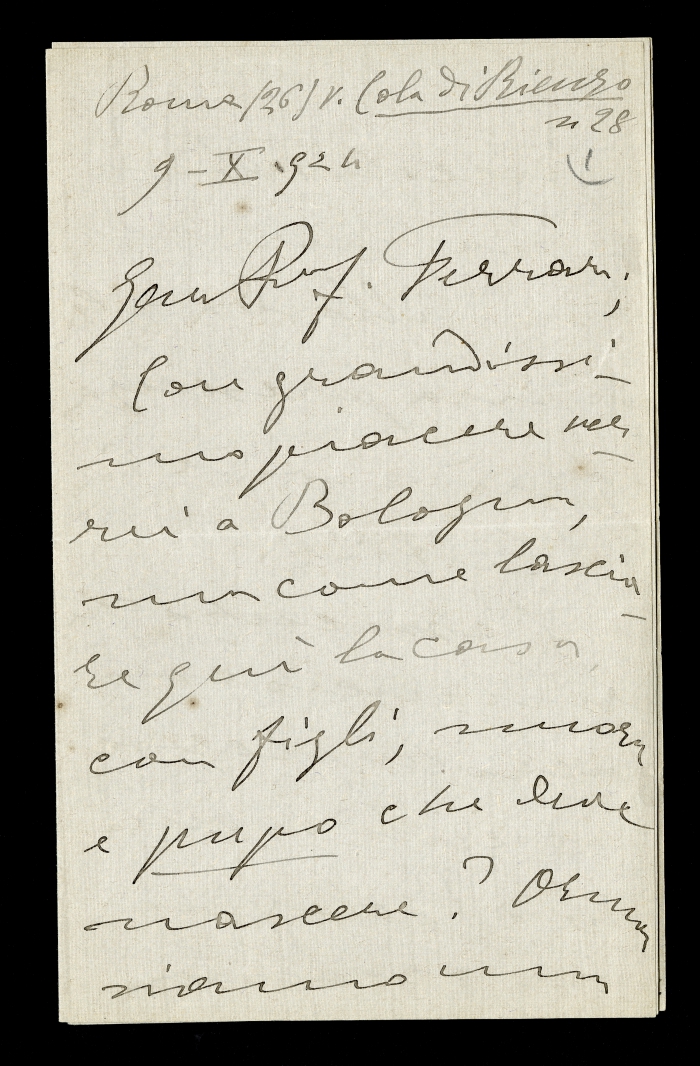 Roma (26) v. Cola di Rienzo
n 28
9-X-924 (1
Prof. Ferrari,
Con grandissi-
mo piacere ver-
rei a Bologna,
ma come lascia-
re qui la casa,
con figli, nuora
e pupo che deve
nascere? Ormai
siamo una